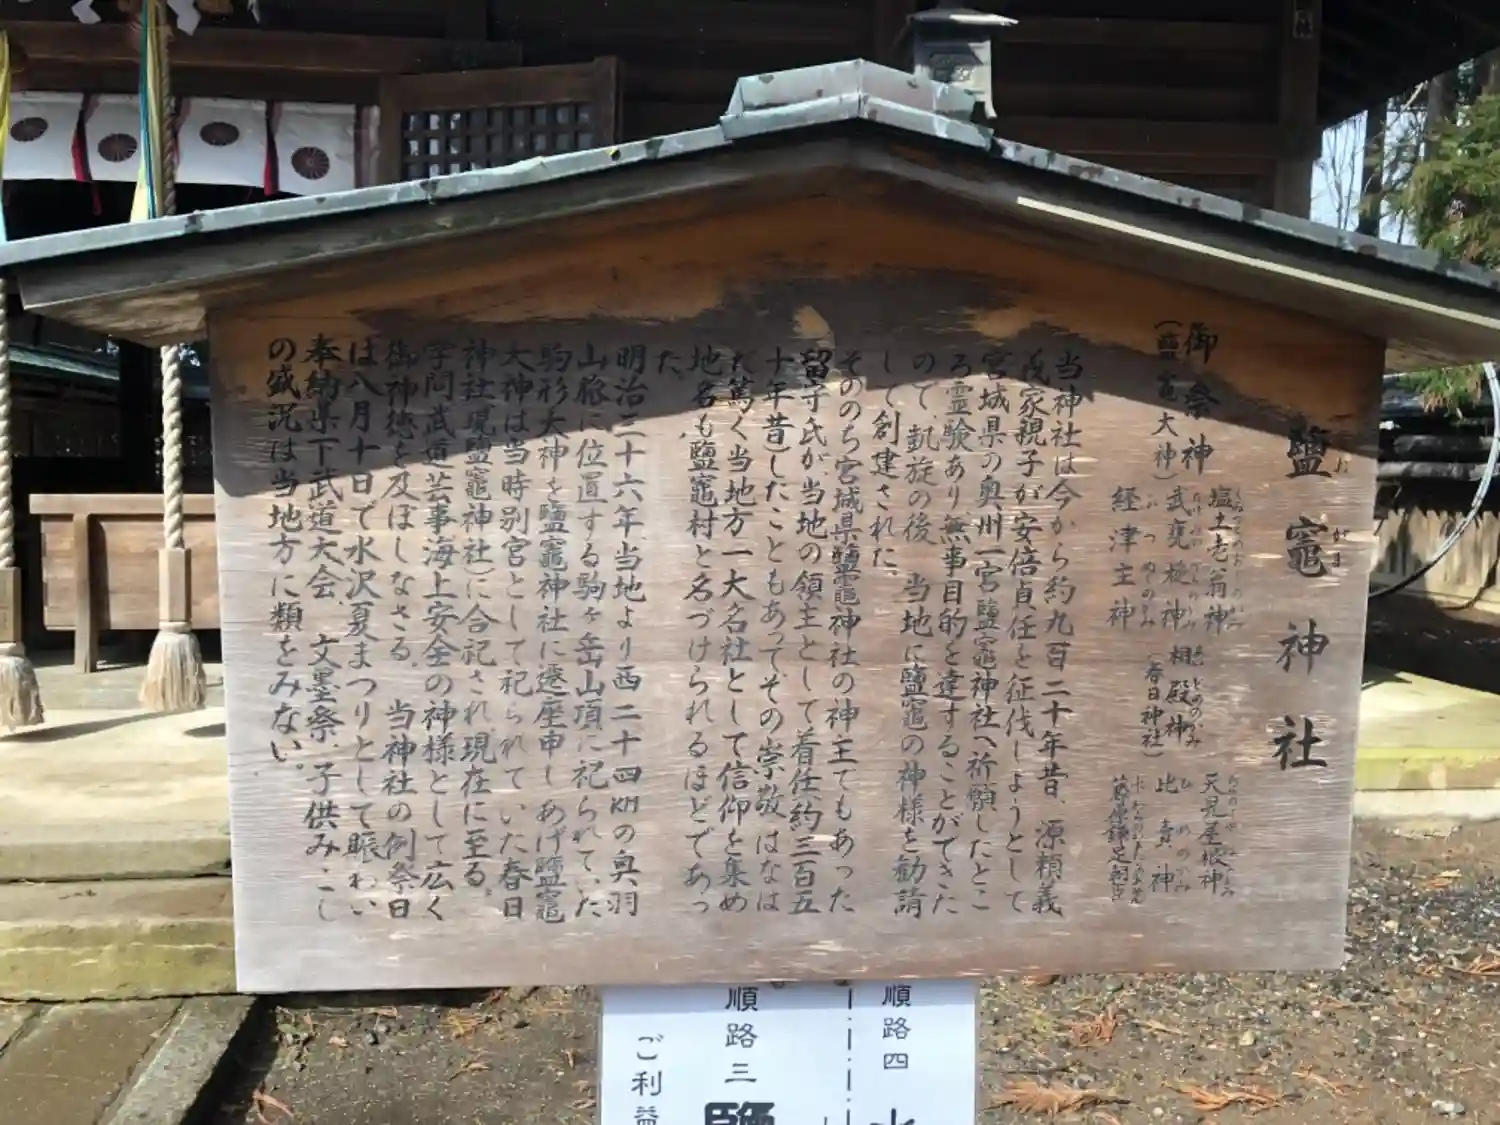 鹽竈神社
しおがま
御祭神
(鹽竈大神)
塩土老翁神
武甕槌神
経津主神
相殿神
(春日神社)
天児屋根神
比売神
当神社は今から約九百二十年昔、源頼義
義家親子が安倍貞任を征伐しようとして
宮城県の奥州一宮鹽竈神社へ祈願したとこ
ろ霊験あり無事目的を達することができた
ので、凱旋の後、当地に鹽竈の神様を勧請
して創建された。
そののち宮城県鹽竈神社の神主でもあった
留守氏が当地の領主として着任(約三百五
十年昔)したこともあってその崇敬はなは
だ篤く当地方一大名社として信仰を集め
地名も鹽竈村と名づけられるほどであっ
た。
明治三十六年、当地より西二十四KMの奥羽
山脈に位置する駒ヶ岳山頂に祀られていた
駒形大神を鹽竈神社に遷座申しあげ鹽竈
大神は当時別宮として祀られていた春日
神社(現鹽竈神社)に合祀され現在に至る。
学問武道芸事海上安全の神様として広く
御神徳を及ぼしなさる。当神社の例祭日
は八月十日で水沢夏まつりとして賑わい
奉納県下武道大会、文墨祭、子供みこし
の盛況は当地方に類をみない。
順路四
順路三
鹽
ご利益